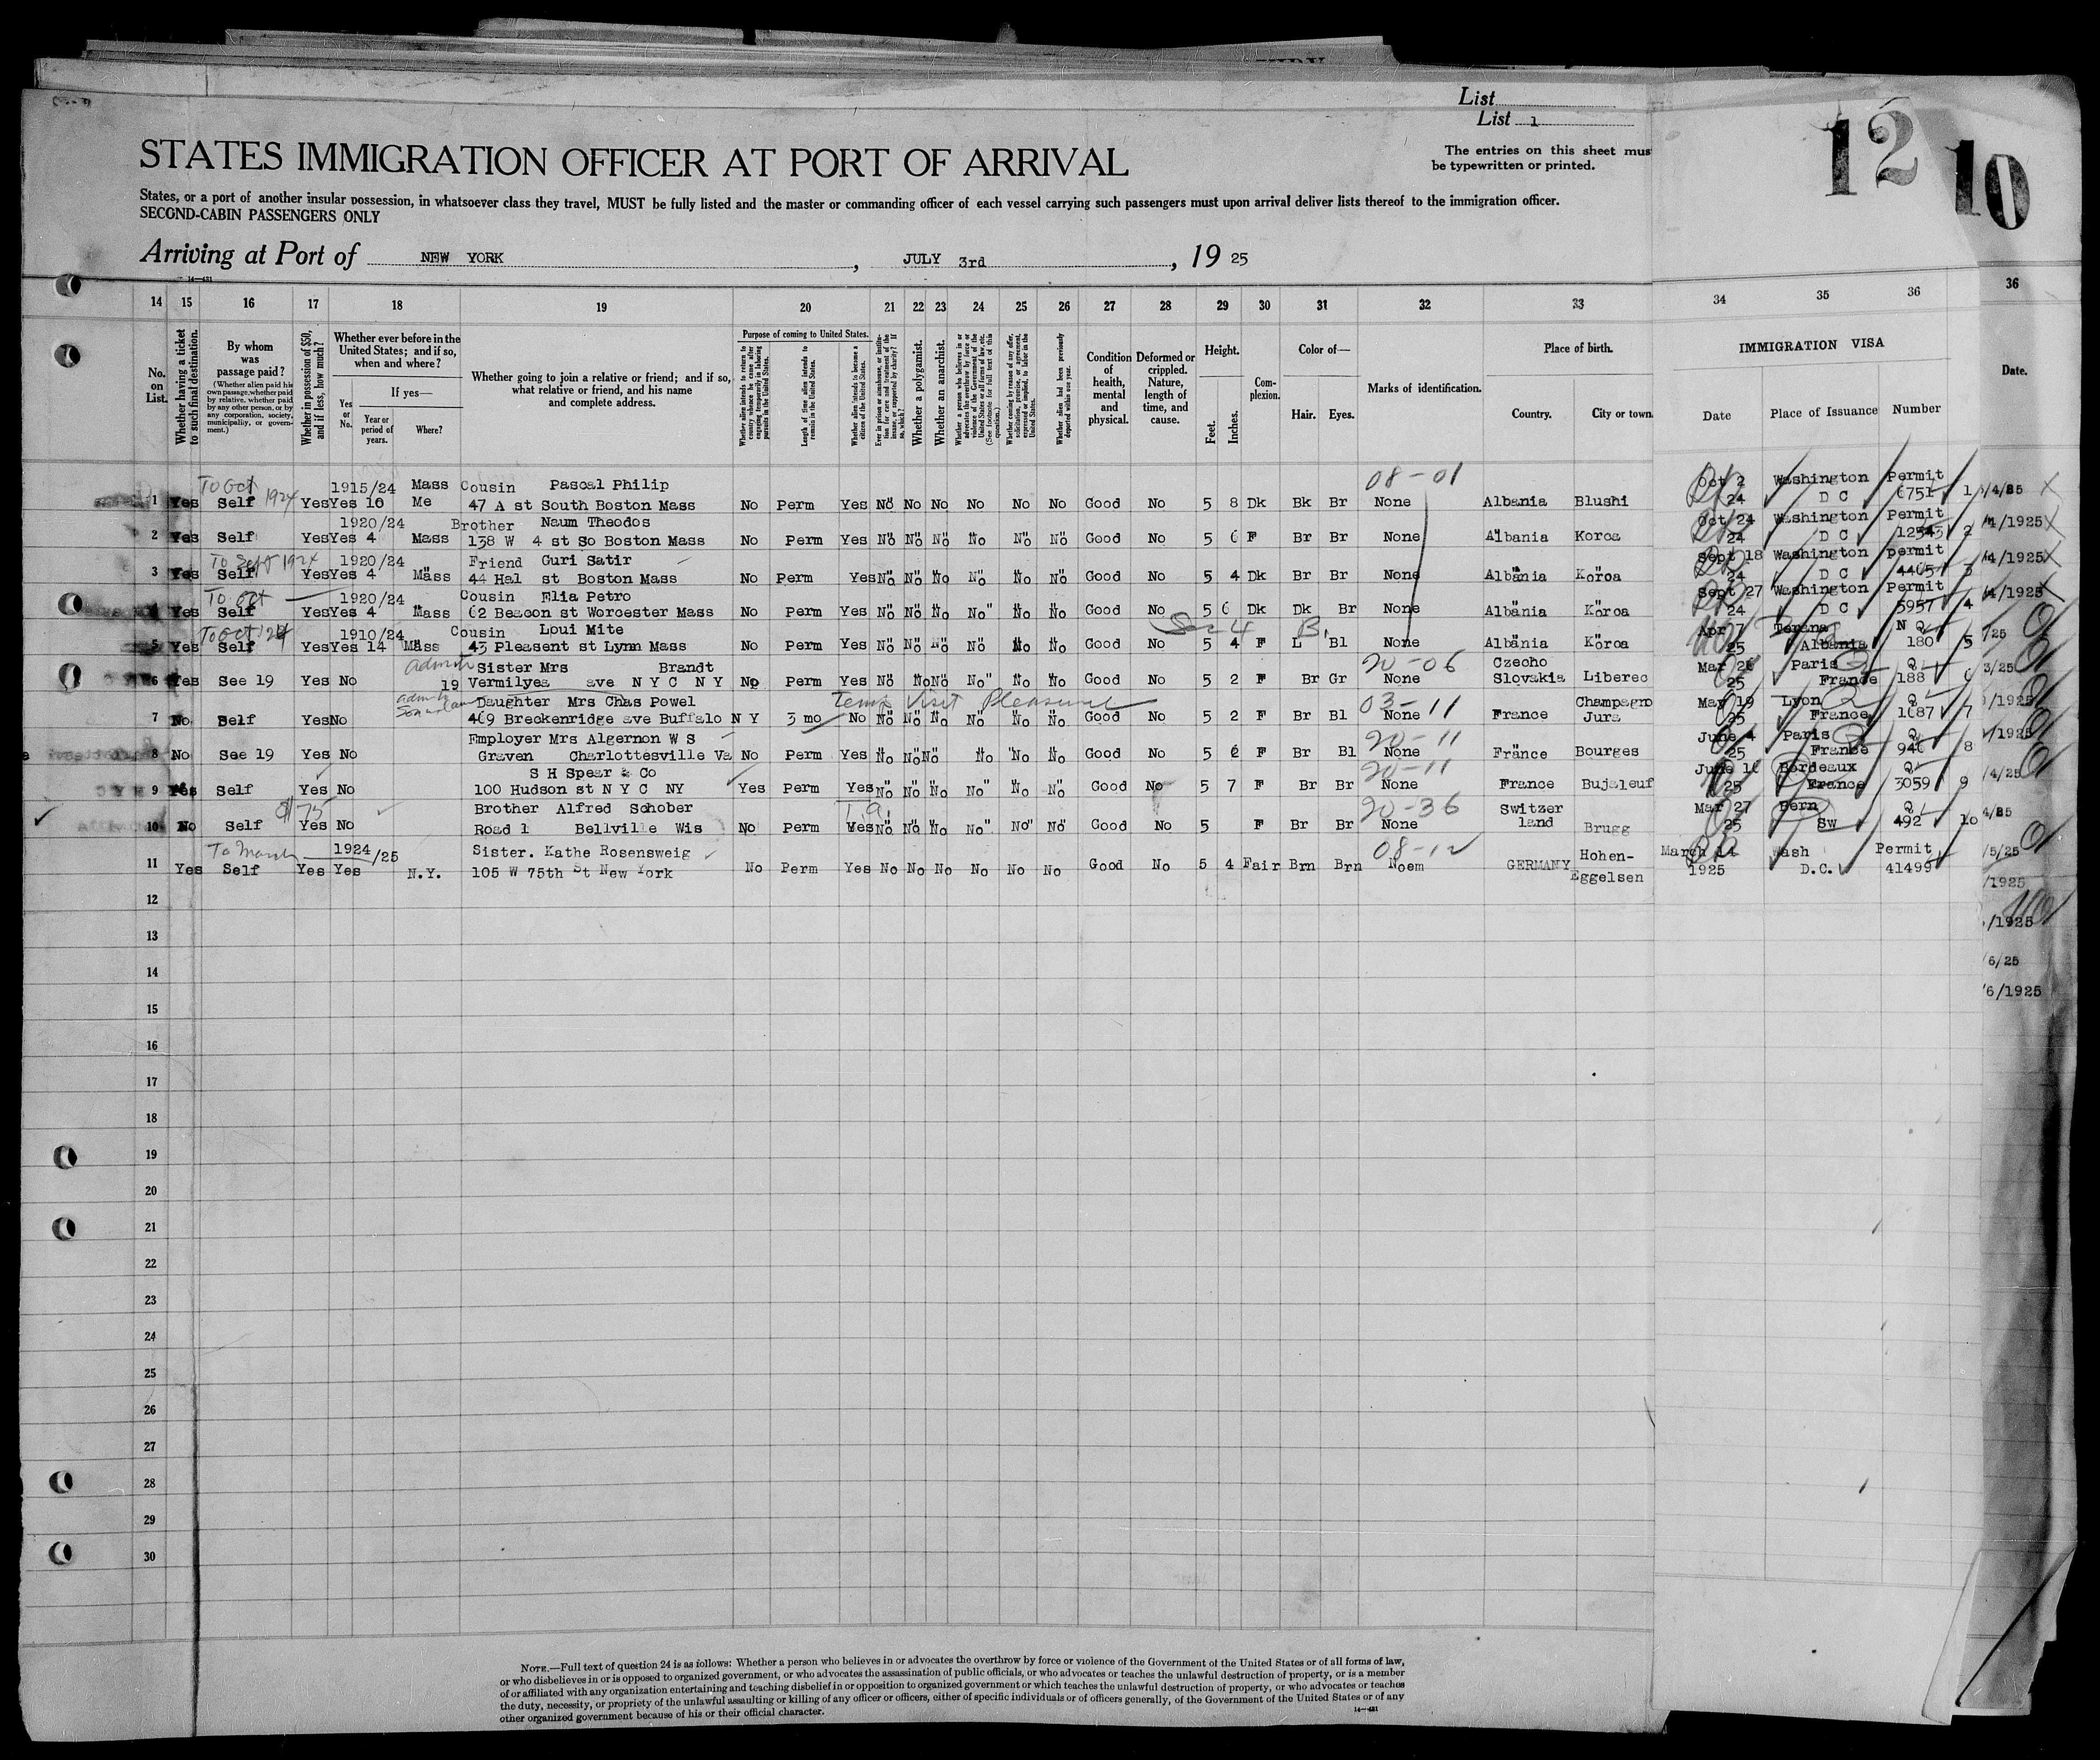 List
List 1
12
10
STATES IMMIGRATION OFFICER AT PORT OF ARRIVAL
The entries on this sheet mus
be typewritten or printed.
States, or a port of another insular possession, in whatsoever class they travel, MUST be fully listed and the master or commanding officer of each vessel carrying such passengers must upon arrival deliver lists thereof to the immigration officer.
SECOND-CABIN PASSENGERS ONLY
Arriving at Port of NEW YORK, JULY 3rd, 19 25
14 15 16 17 18 19 20 21 22 23 24 25 26 27 28 29 30 31 32 33 34 35 36 36
No. on List.
Whether having a ticket to such final destination.
By whom was passage paid?
(Whether alien paid his own passage, whether paid by relative, whether paid by any other person, or by any corporation, society, municipality, or government.)
Whether in possession of $50, and if less, how much?
Whether ever before in the United States; and if so, when and where?
Yes or No.
If yes—
Year or period of years.
Where?
Whether going to join a relative or friend; and if so, what relative or friend, and his name and complete address.
Purpose of coming to United States.
Whether alien intends to return to country whence he came after engaging temporarily in laboring pursuits in the United States.
Length of time alien intends to remain in the United States.
Whether alien intends to become a citizen of the United States.
Ever in prison or almshouse, or institution for care and treatment of the insane, or supported by charity? If so, which?
Whether a polygamist.
Whether an anarchist.
Whether a person who believes in or advocates the overthrow by force or violence of the Government of the United States or all forms of law, etc. (See footnote for full text of this question.)
Whether coming by reason of any offer, solicitation, promise, or agreement, expressed or implied, to labor in the United States.
Whether alien had been previously deported within one year.
Condition of health, mental and physical.
Deformed or crippled. Nature, length of time, and cause.
Height.
Feet.
Inches.
Complexion.
Color of—
Hair.
Eyes.
Marks of identification.
Place of birth.
Country.
City or town.
IMMIGRATION VISA
Date
Place of Issuance
Number
Date.
To Oct 1924 1915/24 Mass Cousin Pascal Philip 08-01 Oct 2 Washington Permit
1 Yes Self Yes Yes 10 Me 47 A st South Boston Mass No Perm Yes No No No No No No Good No 5 8 Dk Bk Br None Albania Blushi 24 D C 6751 1 /4/25
1920/24 Brother Naum Theodos Oct 24 Washington Permit
2 Yes Self Yes Yes 4 Mass 138 W 4 st So Boston Mass No Perm Yes No No No No No No Good No 5 6 F Br Br None Albania Koroa 24 D C 12543 2 /4/1925
To Sept 1924 1920/24 Friend Guri Satir Sept 18 Washington permit
3 Yes Self Yes Yes 4 Mass 44 Hal st Boston Mass No Perm Yes No No No No No No Good No 5 4 Dk Br Br None Albania Koroa 24 D C 4465 3 /4/1925
To Oct 1920/24 Cousin Elia Petro Sept 27 Washington Permit
4 Yes Self Yes Yes 4 Mass 62 Beacon st Worcester Mass No Perm Yes No No No No No No Good No 5 6 Dk Dk Br None Albania Koroa 24 D C 5957 4 /4/1925
To Oct 1924 1910/24 Cousin Loui Mite Apr 7 Terana N Q
5 Yes Self Yes Yes 14 Mass 43 Pleasent st Lynn Mass No Perm Yes No No No No No No Good No 5 4 F L Bl None Albania Koroa 25 Albania 180 5 /25
admit Sister Mrs Brandt 20-06 Czecho Mar 26 Paris Q
6 Yes See 19 Yes No 19 Vermilyea ave N Y C N Y No Perm Yes No No No No No No Good No 5 2 F Br Gr None Slovakia Liberec 25 France 188 6 3/25
Daughter Mrs Chas Powel Temp Visit Pleasure 03-11 Champagno May 19 Lyon Q
7 No Self Yes No 469 Breckenridge ave Buffalo N Y 3 mo No No No No No No No Good No 5 2 F Br Bl None France Jura 25 France 1687 7 /1925
Employer Mrs Algernon W S 20-11 June 4 Paris Q
8 No See 19 Yes No Graven Charlottesville Va No Perm Yes No No No No No No Good No 5 6 F Br Bl None France Bourges 25 France 946 8 /1925
S H Spear & Co 20-11 June 16 Bordeaux Q
9 Yes Self Yes No 100 Hudson st N Y C NY Yes Perm Yes No No No No No No Good No 5 7 F Br Br None France Bujaleuf 25 France 3059 9 /4/25
$175 Brother Alfred Schober 20-36 Switzer Mar 27 Bern Q
10 No Self Yes No Road 1 Bellville Wis No Perm Yes No No No No No No Good No 5 F Br Br None land Brugg 25 Sw 492 10 4/25
To March 1924/25 Sister. Kathe Rosensweig 08-12 Hohen- March 14 Wash Permit /5/25
11 Yes Self Yes Yes N.Y. 105 W 75th St New York No Perm Yes No No No No No No Good No 5 4 Fair Brn Brn Noem GERMANY Eggelsen 1925 D.C. 41499 /1925
12
13 /1925
14 /6/25
15 /6/1925
16
17
18
19
20
21
22
23
24
25
26
27
28
29
30
NOTE.—Full text of question 24 is as follows: Whether a person who believes in or advocates the overthrow by force or violence of the Government of the United States or of all forms of law,
or who disbelieves in or is opposed to organized government, or who advocates the assassination of public officials, or who advocates or teaches the unlawful destruction of property, or is a member
of or affiliated with any organization entertaining and teaching disbelief in or opposition to organized government or which teaches the unlawful destruction of property, or who advocates or teaches
the duty, necessity, or propriety of the unlawful assaulting or killing of any officer or officers, either of specific individuals or of officers generally, of the Government of the United States or of any
other organized government because of his or their official character.
14—431